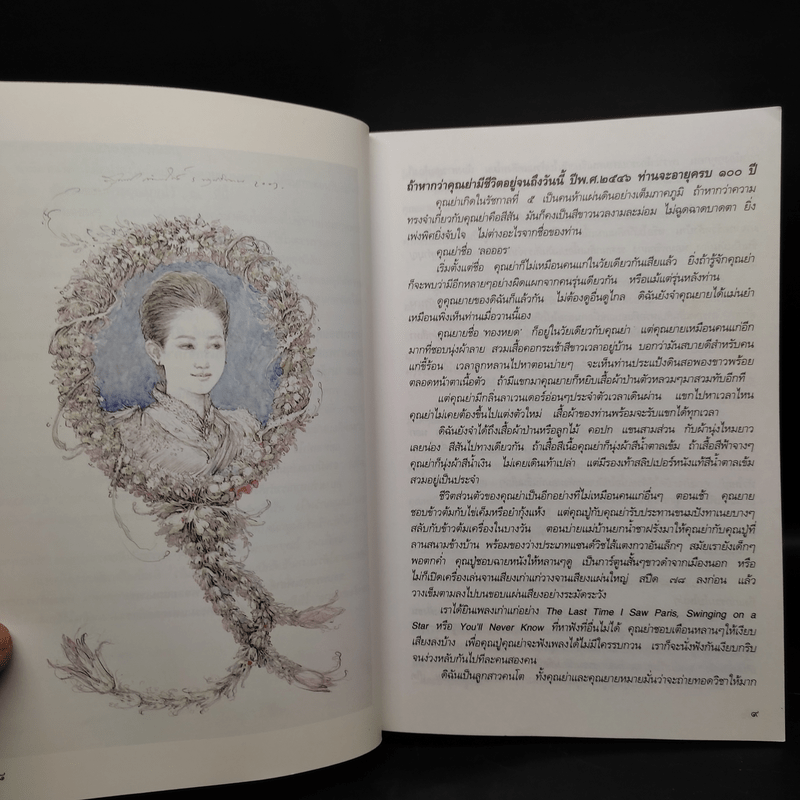 ถ้าหากว่าคุณย่ามีชีวิตอยู่จนถึงวันนี้ ปีพ.ศ.๒๕๔๖ ท่านจะอายุครบ ๑๐๐ ปี
คุณย่าเกิดในรัชกาลที่ ๕ เป็นคนห้าแผ่นดินอย่างเต็มภาคภูมิ ถ้าหากว่าความ
ทรงจำเกี่ยวกับคุณย่าคือสีสัน มันก็คงเป็นสีขาวนวลงามละม่อม ไม่ฉูดฉาดบาดตา ยิ่ง
เพ่งพิศยิ่งจับใจ ไม่ต่างอะไรจากชื่อของท่าน
คุณย่าชื่อ 'ลออออร'
เริ่มตั้งแต่ชื่อ คุณย่าก็ไม่เหมือนคนแก่ในวัยเดียวกันเสียแล้ว ยิ่งถ้ารู้จักคุณย่า
ก็จะพบว่ามีอีกหลายๆอย่างผิดแผกจากคนรุ่นเดียวกัน หรือแม้แต่รุ่นหลังท่าน
ดูคุณยายของดิฉันก็แล้วกัน ไม่ต้องดูอื่นดูไกล ดิฉันยังจำคุณยายได้แม่นยำ
เหมือนเพิ่งเห็นท่านเมื่อวานนี้เอง
คุณยายชื่อ 'ทองหยด' ก็อยู่ในวัยเดียวกับคุณย่า แต่คุณยายเหมือนคนแก่อีก
มากที่ชอบนุ่งผ้าลาย สวมเสื้อคอกระเช้าสีขาวเวลาอยู่บ้าน บอกว่ามันสบายดีสำหรับคน
แก่ขี้ร้อน เวลาลูกหลานไปหาตอนบ่ายๆ จะเห็นท่านประแป้งดินสอพองขาวพร้อย
ตลอดหน้าตาเนื้อตัว ถ้ามีแขกมาคุณยายก็หยิบเสื้อผ้าป่านตัวหลวมๆมาสวมทับอีกที
แต่คุณย่ามีกลิ่นลาเวนเดอร์อ่อนๆประจำตัวเวลาเดินผ่าน แขกไปหาเวลาไหน
คุณย่าไม่เคยต้องขึ้นไปแต่งตัวใหม่ เสื้อผ้าของท่านพร้อมจะรับแขกได้ทุกเวลา
ดิฉันยังจำได้ถึงเสื้อผ้าป่านหรือลูกไม้ คอปก แขนสามส่วน กับผ้านุ่งไหมยาว
เลยน่อง สีสันไปทางเดียวกัน ถ้าเสื้อสีเนื้อคุณย่าก็นุ่งผ้าสีน้ำตาลเข้ม ถ้าเสื้อสีฟ้าจางๆ
คุณย่าก็นุ่งผ้าสีน้ำเงิน ไม่เคยเดินเท้าเปล่า แต่มีรองเท้าสลิปเปอร์หนังแท้สีน้ำตาลเข้ม
สวมอยู่เป็นประจำ
ชีวิตส่วนตัวของคุณย่าเป็นอีกอย่างที่ไม่เหมือนคนแก่อื่นๆ ตอนเช้า คุณยาย
ชอบข้าวต้มกับไข่เค็มหรือยำกุ้งแห้ง แต่คุณปู่กับคุณย่ารับประทานขนมปังทาเนยบางๆ
สลับกับข้าวต้มเครื่องในบางวัน ตอนบ่ายแม่บ้านยกน้ำชาฝรั่งมาให้คุณย่ากับคุณปู่ที่
ลานสนามข้างบ้าน พร้อมของว่างประเภทแซนด์วิชไส้แตงกวาอันเล็กๆ สมัยเรายังเด็กๆ
พอตกค่ำ คุณปู่ชอบฉายหนังให้หลานๆดู เป็นการ์ตูนสั้นๆขาวดำจากเมืองนอก หรือ
ไม่ก็เปิดเครื่องเล่นจานเสียงเก่าแก่วางจานเสียงแผ่นใหญ่ สปีด ๗๘ ลงก่อน แล้ว
วางเข็มตามลงไปบนขอบแผ่นเสียงอย่างระมัดระวัง
เราได้ยินเพลงเก่าแก่อย่าง The Last Time I Saw Paris, Swinging on a
Star หรือ You'll Never Know ที่หาฟังที่อื่นไม่ได้ คุณย่าชอบเตือนหลานๆให้เงียบ
เสียงลงบ้าง เพื่อคุณปู่คุณย่าจะฟังเพลงได้ไม่มีใครรบกวน เราก็จะนั่งฟังกันเงียบกริบ
จนง่วงหลับกันไปทีละคนสองคน
ดิฉันเป็นลูกสาวคนโต ทั้งคุณย่าและคุณยายหมายมั่นว่าจะถ่ายทอดวิชาให้มาก
๙
๘